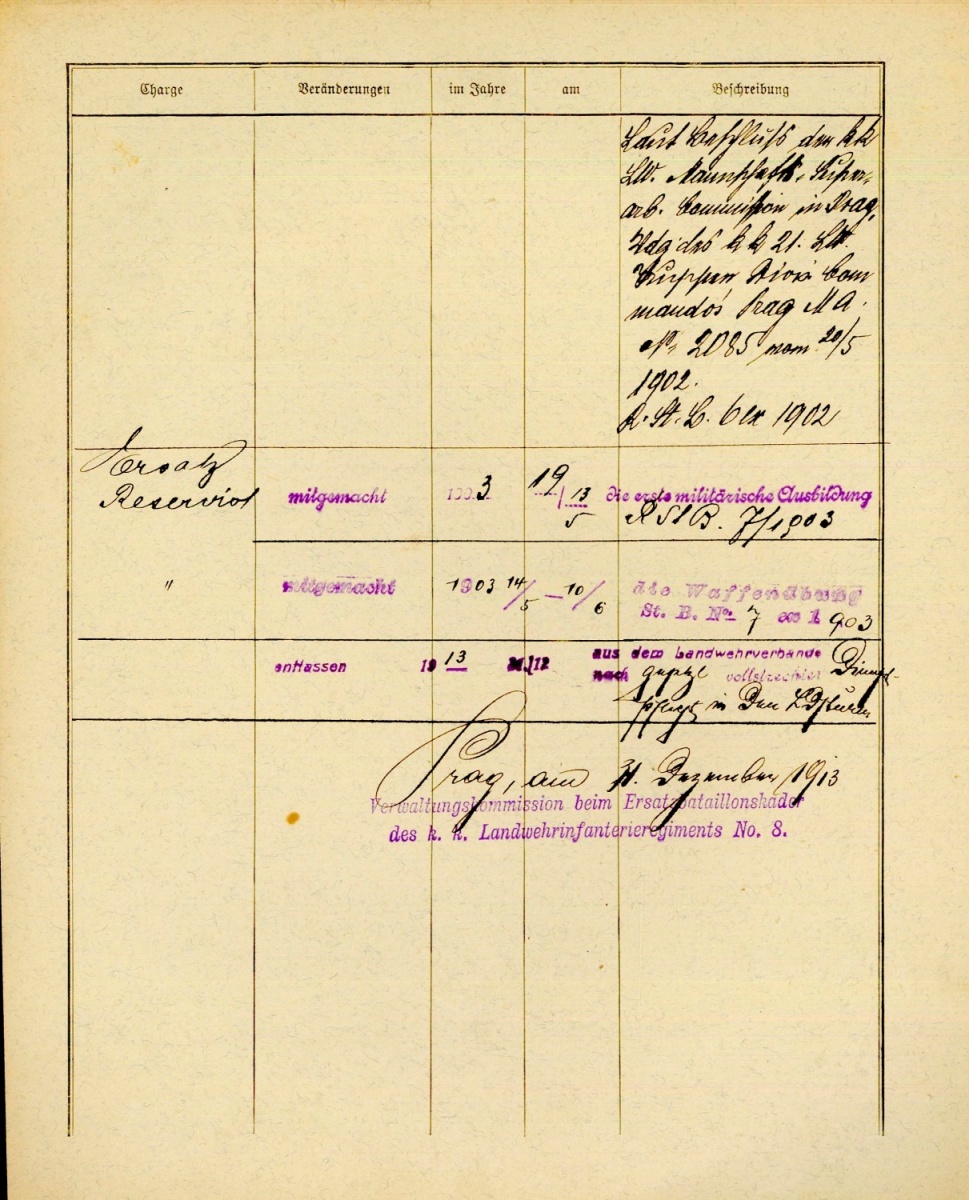 Charge Veränderungen im Jahre am Beschreibung
Laut Beschluß der kk
LW. Mannschafts-Super-
arb. Commission in Prag,
des k k 21. LW.
Truppen Divis Com
mandos Prag M A.
No 2085 vom 20/5
1902.
R. St. B. 6 ex 1902
Ersatz
Reservist mitgemacht 1903 19/ 13/5 die erste militärische Ausbildung
R St B. 7/1903
" mitgemacht 1903 14/5 – 10/6 die Waffenübung
St. B. No 7 ex 1903
entlassen 1913 31./12 aus dem Landwehrverbande
nach vollstreckter Dienst-
pflicht in den Ldsturm
Prag, am 31. Dezember 1913
Verwaltungskommission beim Ersatzbataillonskader
des k. k. Landwehrinfanterieregiments No. 8.